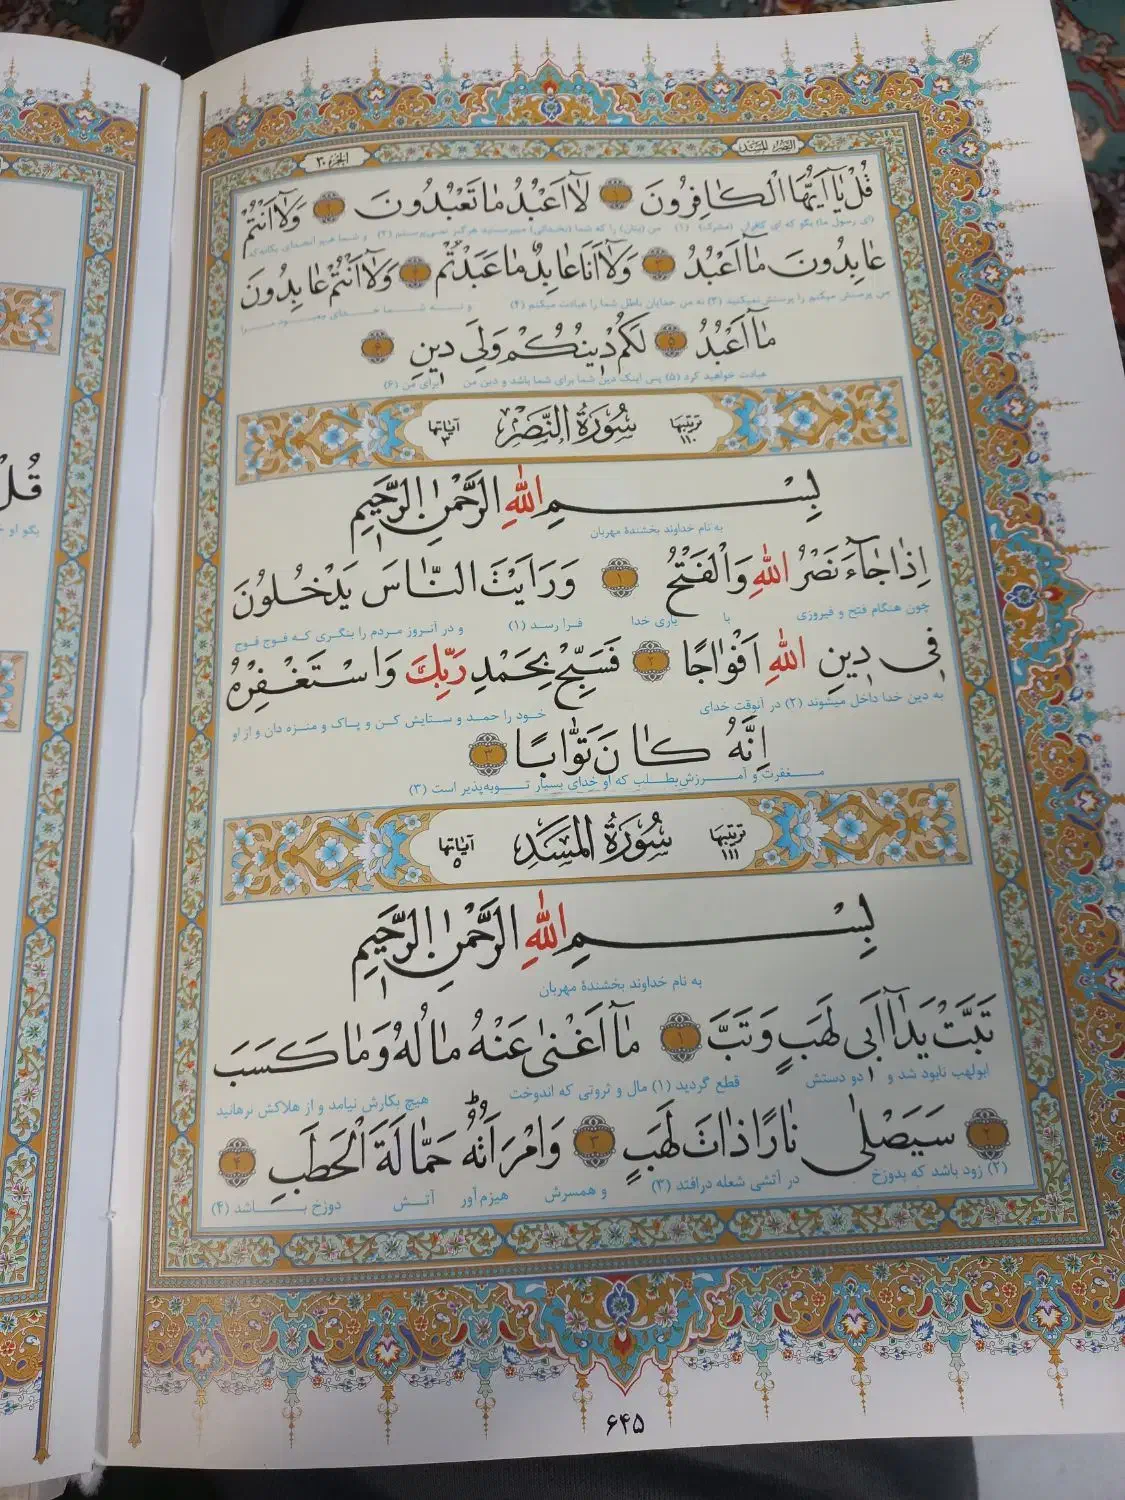 النصر المسد
الجزء ۳۰
قُلْ يَا اَيُّهَا الْكَافِرُونَ ۱ لَا اَعْبُدُ مَا تَعْبُدُونَ ۲ وَلَا اَنْتُمْ
(ای رسول ما) بگو که ای کافران (مشرک) (۱) من (بتان) را که شما (بخدائی) میپرستید هرگز نمی‌پرستم (۲) و شما هم آنخدای یگانه‌که
عَابِدُونَ مَا اَعْبُدُ ۳ وَلَا اَنَا عَابِدٌ مَا عَبَدْتُمْ ۴ وَلَا اَنْتُمْ عَابِدُونَ
من پرستش میکنم را پرستش نمیکنید (۳) نه من خدایان باطل شما را عبادت میکنم (۴) و نه شما خدای معبود مرا
مَا اَعْبُدُ ۵ لَكُمْ دِينُكُمْ وَلِيَ دِينِ ۶
عبادت خواهید کرد (۵) پس اینک دین شما برای شما باشد و دین من برای من (۶)
ترتيبها ۱۱۰ سُورَةُ النَّصْرِ آياتها ۳
بِسْمِ اللهِ الرَّحْمٰنِ الرَّحِيمِ
به نام خداوند بخشندۀ مهربان
اِذَا جَاءَ نَصْرُ اللهِ وَالْفَتْحُ ۱ وَرَاَيْتَ النَّاسَ يَدْخُلُونَ
چون هنگام فتح و فیروزی با یاری خدا فرا رسد (۱) و در آنروز مردم را بنگری که فوج فوج
فِي دِينِ اللهِ اَفْوَاجًا ۲ فَسَبِّحْ بِحَمْدِ رَبِّكَ وَاسْتَغْفِرْهُ
به دین خدا داخل میشوند (۲) در آنوقت خدای خود را حمد و ستایش کن و پاک و منزه دان و از او
اِنَّهُ كَانَ تَوَّابًا ۳
مغفرت و آمرزش بطلب که او خدای بسیار توبه‌پذیر است (۳)
ترتيبها ۱۱۱ سُورَةُ الْمَسَدِ آياتها ۵
بِسْمِ اللهِ الرَّحْمٰنِ الرَّحِيمِ
به نام خداوند بخشندۀ مهربان
تَبَّتْ يَدَا اَبِي لَهَبٍ وَتَبَّ ۱ مَا اَغْنىٰ عَنْهُ مَالُهُ وَمَا كَسَبَ
ابولهب نابود شد و دو دستش قطع گردید (۱) مال و ثروتی که اندوخت هیچ بکارش نیامد و از هلاکش نرهانید
۲ سَيَصْلىٰ نَارًا ذَاتَ لَهَبٍ ۳ وَامْرَاَتُهُ حَمَّالَةَ الْحَطَبِ ۴
(۲) زود باشد که بدوزخ در آتشی شعله درافتد (۳) و همسرش هیزم آور آتش دوزخ باشد (۴)
۶۴۵
قُلْ
بگو او